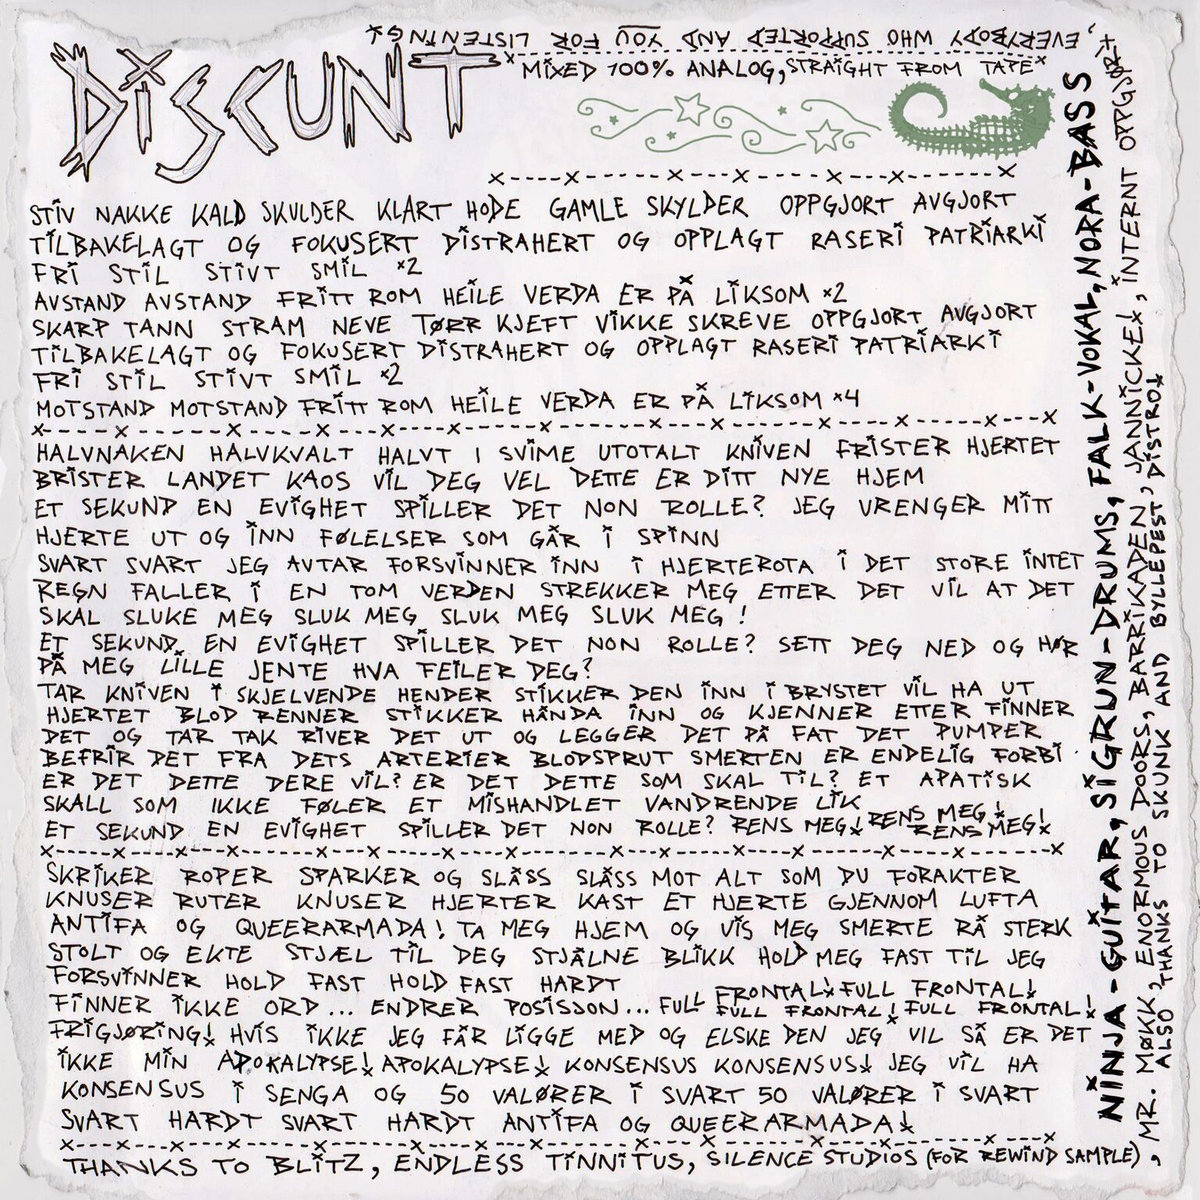 DISCUNT
*MIXED 100% ANALOG, STRAIGHT FROM TAPE*
STIV NAKKE KALD SKULDER KLART HODE GAMLE SKYLDER OPPGJORT AVGJORT
TILBAKELAGT OG FOKUSERT DISTRAHERT OG OPPLAGT RASERI PATRIARKI
FRI STIL STIVT SMIL x2
AVSTAND AVSTAND FRITT ROM HEILE VERDA ER PÅ LIKSOM x2
SKARP TANN STRAM NEVE TØRR KJEFT VIKKE SKREVE OPPGJORT AVGJORT
TILBAKELAGT OG FOKUSERT DISTRAHERT OG OPPLAGT RASERI PATRIARKI
FRI STIL STIVT SMIL x2
MOTSTAND MOTSTAND FRITT ROM HEILE VERDA ER PÅ LIKSOM x4
HALVNAKEN HALVKVALT HALVT I SVIME UTOTALT KNIVEN FRISTER HJERTET
BRISTER LANDET KAOS VIL DEG VEL DETTE ER DITT NYE HJEM
ET SEKUND EN EVIGHET SPILLER DET NON ROLLE? JEG VRENGER MITT
HJERTE UT OG INN FØLELSER SOM GÅR I SPINN
SVART SVART JEG AVTAR FORSVINNER INN I HJERTEROTA I DET STORE INTET
REGN FALLER I EN TOM VERDEN STREKKER MEG ETTER DET VIL AT DET
SKAL SLUKE MEG SLUK MEG SLUK MEG SLUK MEG!
ET SEKUND EN EVIGHET SPILLER DET NON ROLLE? SETT DEG NED OG HØR
PÅ MEG LILLE JENTE HVA FEILER DEG?
TAR KNIVEN I SKJELVENDE HENDER STIKKER DEN INN I BRYSTET VIL HA UT
HJERTET BLOD RENNER STIKKER HÅNDA INN OG KJENNER ETTER FINNER
DET OG TAR TAK RIVER DET UT OG LEGGER DET PÅ FAT DET PUMPER
BEFRIR DET FRA DETS ARTERIER BLODSPRUT SMERTEN ER ENDELIG FORBI
ER DET DETTE DERE VIL? ER DET DETTE SOM SKAL TIL? ET APATISK
SKALL SOM IKKE FØLER ET MISHANDLET VANDRENDE LIK
ET SEKUND EN EVIGHET SPILLER DET NON ROLLE? RENS MEG! RENS MEG! RENS MEG!
SKRIKER ROPER SPARKER OG SLÅSS SLÅSS MOT ALT SOM DU FORAKTER
KNUSER RUTER KNUSER HJERTER KAST ET HJERTE GJENNOM LUFTA
ANTIFA OG QUEERARMADA! TA MEG HJEM OG VIS MEG SMERTE RÅ STERK
STOLT OG EKTE STJÆL TIL DEG STJÅLNE BLIKK HOLD MEG FAST TIL JEG
FORSVINNER HOLD FAST HOLD FAST HARDT
FINNER IKKE ORD... ENDRER POSISJON... FULL FRONTAL! FULL FRONTAL!
FULL FRONTAL! FULL FRONTAL!
FRIGJØRING! HVIS IKKE JEG FÅR LIGGE MED OG ELSKE DEN JEG VIL SÅ ER DET
IKKE MIN APOKALYPSE! APOKALYPSE! KONSENSUS KONSENSUS! JEG VIL HA
KONSENSUS I SENGA OG 50 VALØRER I SVART 50 VALØRER I SVART
SVART HARDT SVART HARDT ANTIFA OG QUEERARMADA!
THANKS TO BLITZ, ENDLESS TINNITUS, SILENCE STUDIOS (FOR REWIND SAMPLE),
MR. MØKK, ENORMOUS DOORS, BARRIKADEN, JANNICKE!, INTERNT OPPGJØR,
EVERYBODY WHO SUPPORTED AND YOU FOR LISTENING*
NINJA-GUITAR, SIGRUN-DRUMS, FALK-VOKAL, NORA-BASS
ALSO THANKS TO SKUNK AND BYLLEPEST DISTRO!